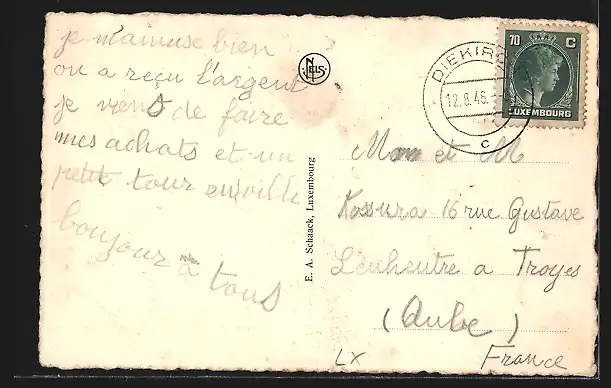 je m'amuse bien
on a reçu l'argent
je viens de faire
mes achats et un
petit tour en ville
bonjour a tous
NELS
E. A. Schaack, Luxembourg
DIEKIRCH
12.8.46.
C
70 C
LUXEMBOURG
et M
Kossura 16 rue Gustave
a Troyes
(Aube)
LX
France